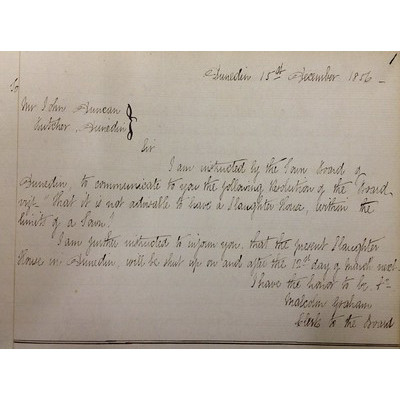 1
Dunedin 15th December 1856 –
To
Mr John Duncan
Butcher, Dunedin
Sir
I am instructed by the Town Board of
Dunedin, to communicate to you the following Resolution of the Board
viz "that it is not advisable to have a Slaughter House, within the
limits of a Town".
I am further instructed to inform you, that the present Slaughter
House in Dunedin, will be shut up on and after the 12th day of March next
I have the honor to be &c
Malcolm Graham
Clerk to the Board